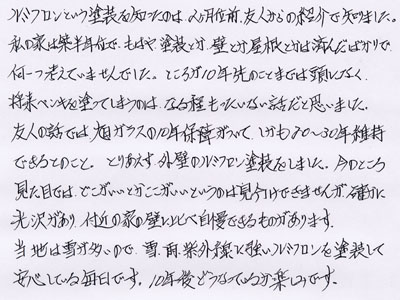 ルミフロンという塗装を知ったのは、2ヶ月位前、友人からの紹介で知りました。
私の家は築半年位で、もはや塗装とか、壁とか屋根とかは済んだばかりで、
何一つ考えていませんでした。ところが10年先のことまでは頭になく、
将来ペンキを塗ってしまうのは、なる程もったいない話だと思いました。
友人の話では旭ガラスの10年保障がついて、しかも20〜30年維持
できるとのこと。とりあえず外壁のルミフロン塗装をしました。今のところ
見た目では、どこがいいとかここがいいというのは見分けできませんが、確かに
光沢があり、付近の家の壁に比べ自慢できるものがあります。
当地は雪が多いので、雪、雨、紫外線に強いルミフロンを塗装して
安心している毎日です。10年後どうなっているか楽しみです。